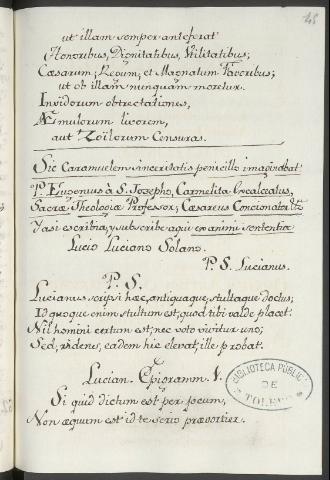 45
ut illam semper anteferat
Honoribus, Dignitatibus, Utilitatibus;
Cæsarum, Regum, et Magnatum Favoribus;
ut ob illam nunquam moretur.
Invidorum obtrectationes,
Æmulorum livorem,
aut Zoilorum Censuras.
Sic Caramuelem sinceritatis penicillo imaginabat
P. Eugenius à S. Iozepho, Carmelita Excalceatus,
Sacræ Theologiæ Professor, Cæsareus Concionator &c.
Y asi escribia, y subscribe aqui ex animi sententia
Lucio Luciano Solano.
P. S. Lucianus.
P. S.
Lucianus scripsi hæc, antiquaque, stultaque doctus;
Id quoque enim stultum est, quod tibi valde placet.
Nil homini certum est; nec voto vivitur uno;
Sed, ridens, eadem hic elevat, ille probat.
Lucian. Epigramm. 1.
Si quid dictum est per jocum,
Non æquum est id te serio prævortier.
BIBLIOTECA PÚBLICA
DE
TOLEDO